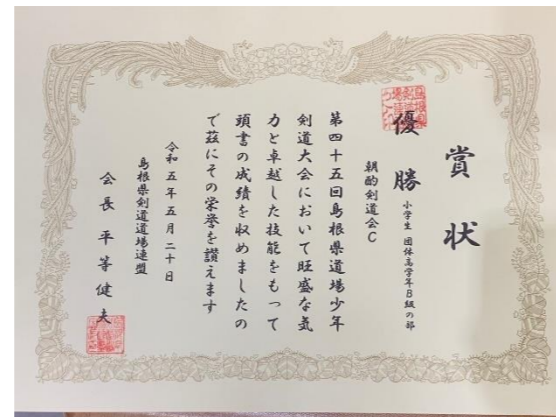 賞状
優勝 小学生 団体高学年B級の部
朝酌剣道会C
第四十五回島根県道場少年
剣道大会において旺盛な気
力と卓越した技能をもって
頭書の成績を収めましたの
で茲にその栄誉を讃えます
令和五年五月二十日
島根県剣道道場連盟
会長 平等健夫